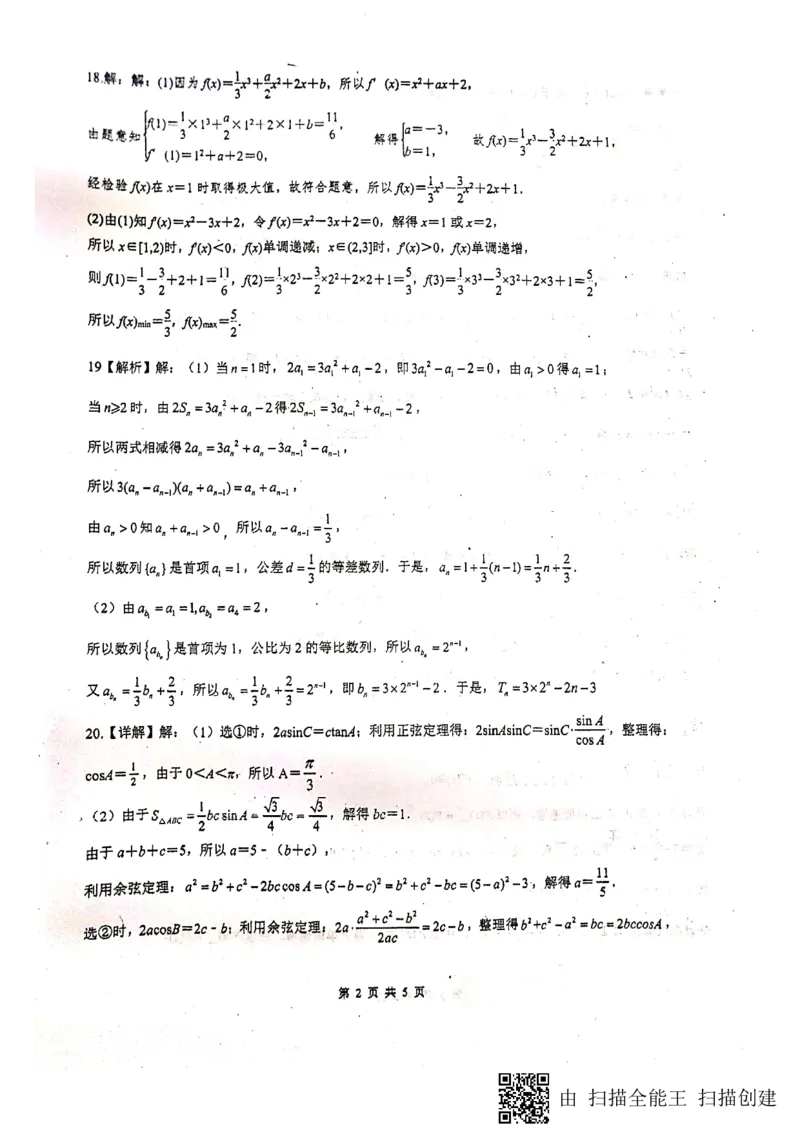 18.解：解：(1)因为 f(x)=\frac{1}{3}x³+\frac{a}{2}x²+2x+b，所以 f′(x)=x²+ax+2，
由题意知 {f(1)=\frac{1}{3}×1³+\frac{a}{2}×1²+2×1+b=\frac{11}{6}， f′(1)=1²+a+2=0， 解得 {a=−3， b=1， 故 f(x)=\frac{1}{3}x³−\frac{3}{2}x²+2x+1，
经检验 f(x)在 x=1 时取得极大值，故符合题意，所以 f(x)=\frac{1}{3}x³−\frac{3}{2}x²+2x+1.
(2)由(1)知 f′(x)=x²−3x+2，令 f′(x)=x²−3x+2=0，解得 x=1 或 x=2，
所以 x∈[1,2)时，f′(x)<0，f(x)单调递减；x∈(2,3]时，f′(x)>0，f(x)单调递增，
则 f(1)=\frac{1}{3}−\frac{3}{2}+2+1=\frac{11}{6}，f(2)=\frac{1}{3}×2³−\frac{3}{2}×2²+2×2+1=\frac{5}{3}，f(3)=\frac{1}{3}×3³−\frac{3}{2}×3²+2×3+1=\frac{5}{2}，
所以 f(x)min=\frac{5}{3}，f(x)max=\frac{5}{2}.
19【解析】解：（1）当 n=1时，2a₁=3a₁²+a₁−2，即3a₁²−a₁−2=0，由a₁>0得a₁=1；
当 n≥2 时，由 2Sₙ=3aₙ²+aₙ−2得2Sₙ₋₁=3aₙ₋₁²+aₙ₋₁−2，
所以两式相减得 2aₙ=3aₙ²+aₙ−3aₙ₋₁²−aₙ₋₁，
所以 3(aₙ−aₙ₋₁)(aₙ+aₙ₋₁)=aₙ+aₙ₋₁，
由 aₙ>0知aₙ+aₙ₋₁>0，所以 aₙ−aₙ₋₁=\frac{1}{3}，
所以数列{aₙ}是首项a₁=1，公差d=\frac{1}{3}的等差数列．于是，aₙ=1+\frac{1}{3}(n−1)=\frac{1}{3}n+\frac{2}{3}．
（2）由 a_{b₁}=a₁=1,a_{b₂}=a₄=2，
所以数列{a_{bₙ}}是首项为 1，公比为 2 的等比数列，所以 a_{bₙ}=2ⁿ⁻¹，
又 a_{bₙ}=\frac{1}{3}bₙ+\frac{2}{3}，所以 a_{bₙ}=\frac{1}{3}bₙ+\frac{2}{3}=2ⁿ⁻¹，即 bₙ=3×2ⁿ⁻¹−2．于是，Tₙ=3×2ⁿ−2n−3
20.【详解】解：（1）选①时，2asinC=ctanA；利用正弦定理得：2sinAsinC=sinC·\frac{sin A}{cos A}，整理得：
cosA=\frac{1}{2}，由于 0<A<π，所以 A=\frac{π}{3}．
（2）由于 S△ABC=\frac{1}{2}bc sin A=\frac{√3}{4}bc=\frac{√3}{4}，解得 bc=1．
由于 a+b+c=5，所以 a=5﹣（b+c），
利用余弦定理：a²=b²+c²−2bc cos A=(5−b−c)²=b²+c²−bc=(5−a)²−3，解得 a=\frac{11}{5}．
选②时，2acosB=2c﹣b；利用余弦定理：2a·\frac{a²+c²−b²}{2ac}=2c−b，整理得b²+c²−a²=bc=2bccosA，
第 2 页 共 5 页
由 扫描全能王 扫描创建